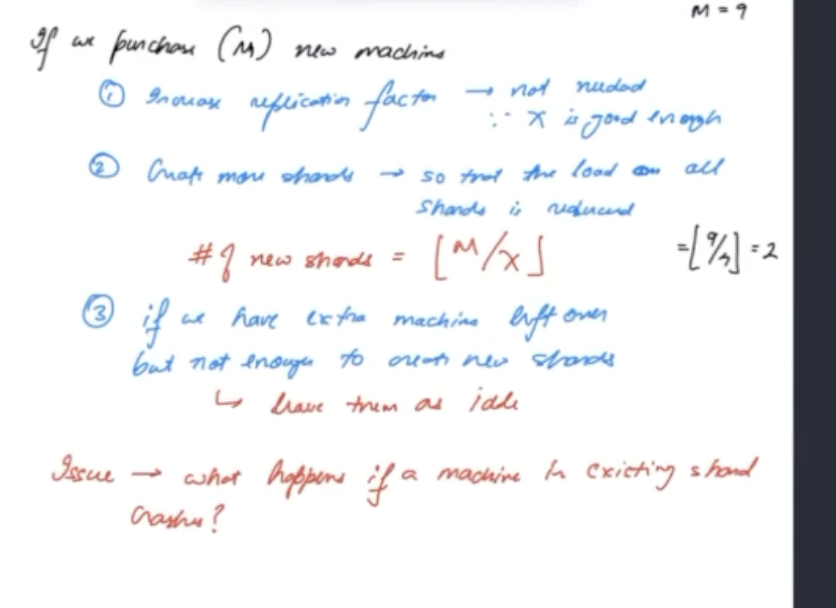 M = 9
If we purchase (M) new machine
① Increase replication factor → not needed
∵ X is good enough
② Create more shards → so that the load on all
shards is reduced
# of new shards = ⌊M/X⌋ = ⌊9/4⌋ = 2
③ if we have extra machine left over
but not enough to create new shards
↳ leave them as idle
Issue → what happens if a machine in existing shard
crashes?